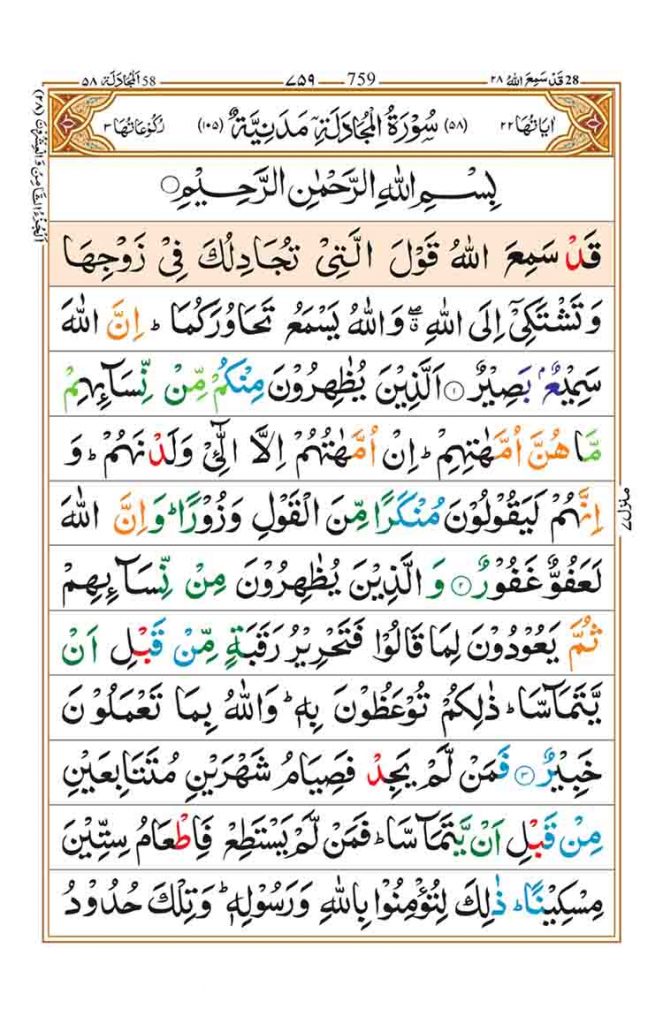 ٢٨ قَدْ سَمِعَ اللّٰهُ 28
٧٥٩ 759
٥٨ اَلْمُجَادَلَة 58
اٰيَاتُهَا ٢٢ (٥٨) سُوْرَةُ الْمُجَادَلَةِ مَدَنِيَّةٌ (١٠٥) رُكُوْعَاتُهَا ٣
اَلْجُزْءُ الثَّامِنُ وَالْعِشْرُوْنَ (٢٨)
بِسْمِ اللّٰهِ الرَّحْمٰنِ الرَّحِيْمِ
قَدْ سَمِعَ اللّٰهُ قَوْلَ الَّتِيْ تُجَادِلُكَ فِيْ زَوْجِهَا
وَتَشْتَكِيْٓ اِلَى اللّٰهِ ۖ وَاللّٰهُ يَسْمَعُ تَحَاوُرَكُمَا ؕ اِنَّ اللّٰهَ
سَمِيْعٌۢ بَصِيْرٌ ۝١ اَلَّذِيْنَ يُظٰهِرُوْنَ مِنْكُمْ مِّنْ نِّسَآئِهِمْ
مَّا هُنَّ اُمَّهٰتِهِمْ ؕ اِنْ اُمَّهٰتُهُمْ اِلَّا الّٰٓـِٔيْ وَلَدْنَهُمْ ؕ وَ
اِنَّهُمْ لَيَقُوْلُوْنَ مُنْكَرًا مِّنَ الْقَوْلِ وَزُوْرًا ؕ وَاِنَّ اللّٰهَ
لَعَفُوٌّ غَفُوْرٌ ۝٢ وَالَّذِيْنَ يُظٰهِرُوْنَ مِنْ نِّسَآئِهِمْ
ثُمَّ يَعُوْدُوْنَ لِمَا قَالُوْا فَتَحْرِيْرُ رَقَبَةٍ مِّنْ قَبْلِ اَنْ
يَّتَمَآسَّا ؕ ذٰلِكُمْ تُوْعَظُوْنَ بِهٖ ؕ وَاللّٰهُ بِمَا تَعْمَلُوْنَ
خَبِيْرٌ ۝٣ فَمَنْ لَّمْ يَجِدْ فَصِيَامُ شَهْرَيْنِ مُتَتَابِعَيْنِ
مِنْ قَبْلِ اَنْ يَّتَمَآسَّا ؕ فَمَنْ لَّمْ يَسْتَطِعْ فَاِطْعَامُ سِتِّيْنَ
مِسْكِيْنًا ؕ ذٰلِكَ لِتُؤْمِنُوْا بِاللّٰهِ وَرَسُوْلِهٖ ؕ وَتِلْكَ حُدُوْدُ
منزل ٧